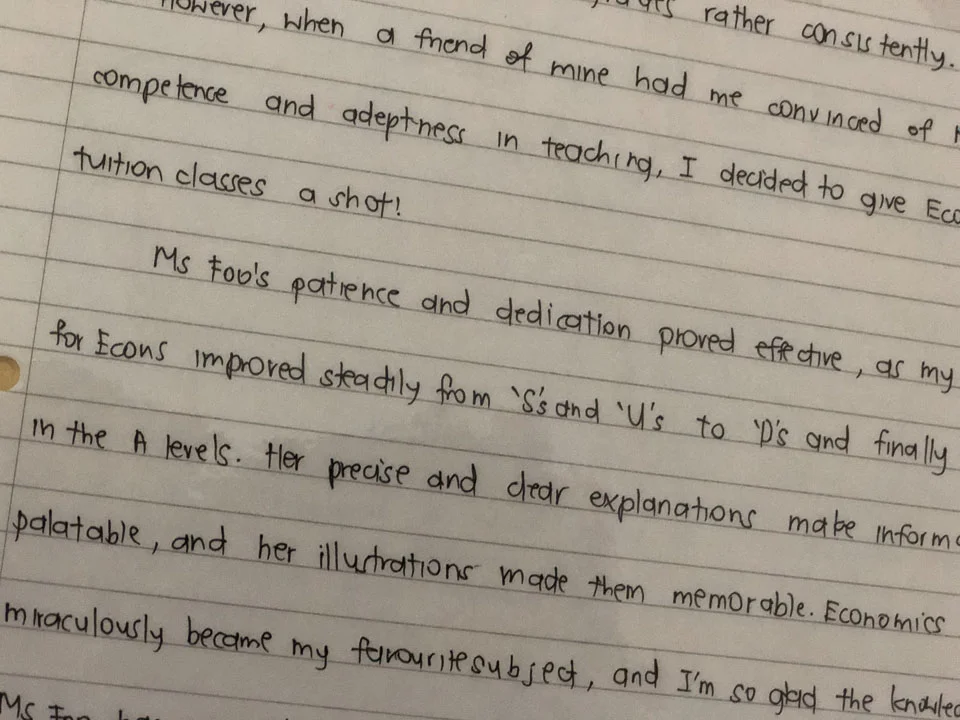 rather consistently.
However, when a friend of mine had me convinced of
competence and adeptness in teaching, I decided to give
tuition classes a shot!
Ms Foo's patience and dedication proved effective, as my
for Econs improved steadily from 'S's and 'U's to 'D's and finally
in the A levels. Her precise and clear explanations make
palatable, and her illustrations made them memorable. Economics
miraculously became my favourite subject, and I'm so glad the
Ms Foo